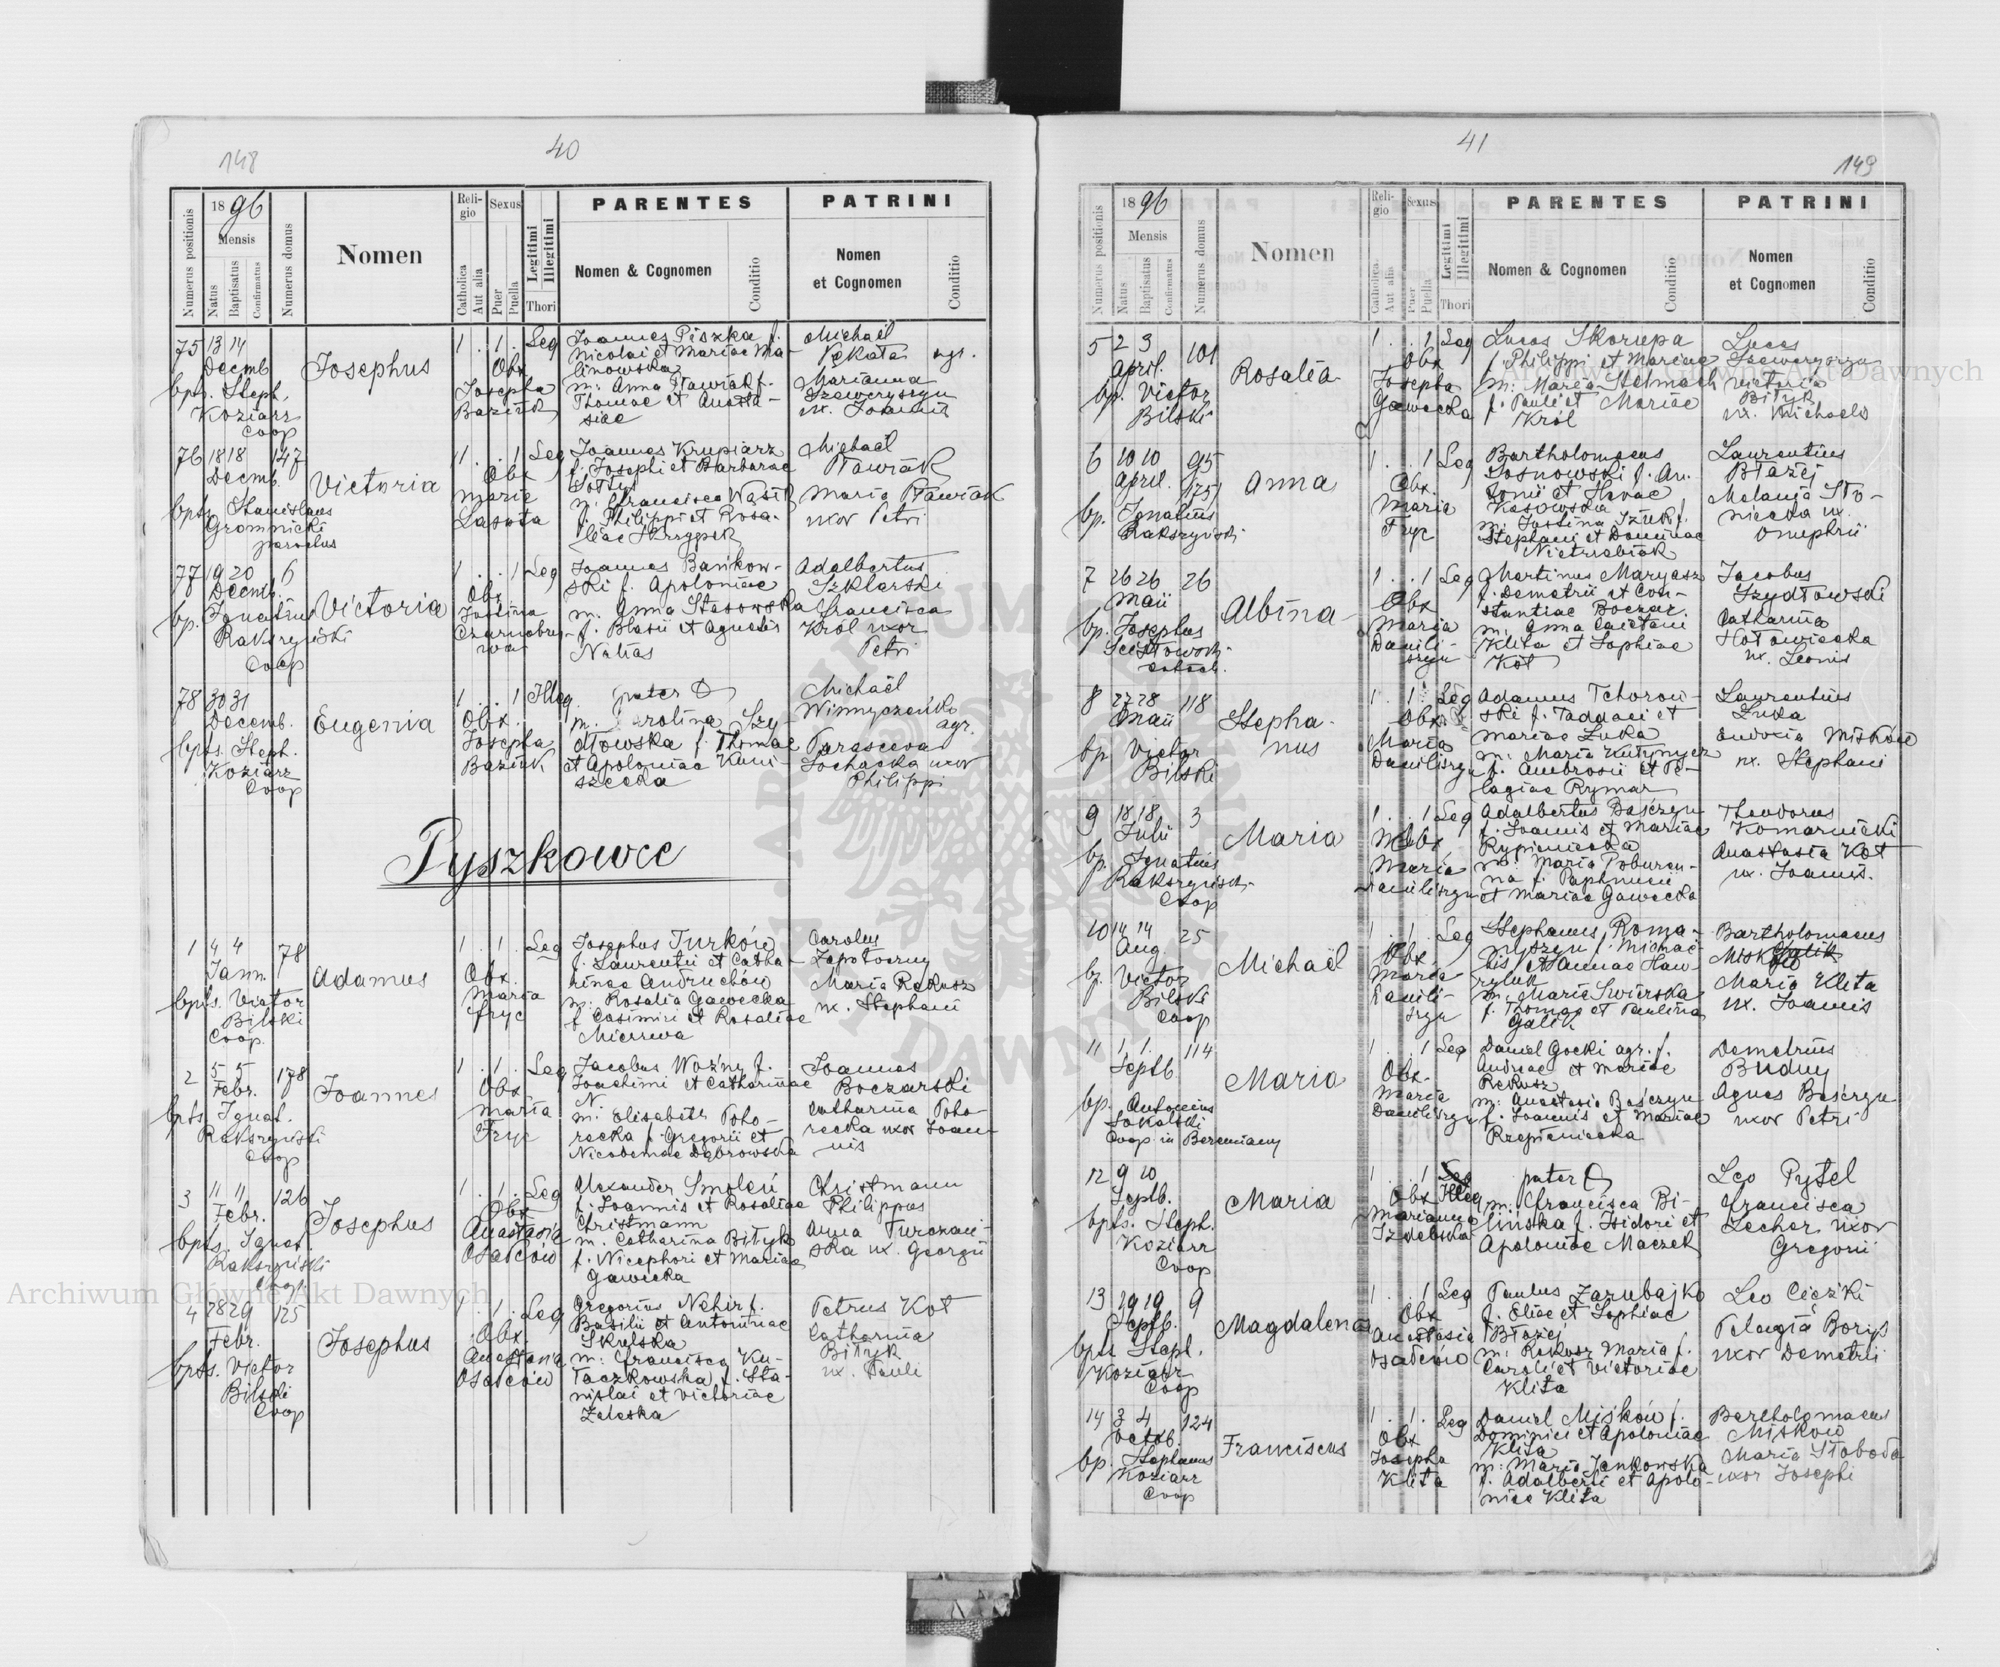 40
148
Numerus positionis
1896
Mensis
Natus
Baptisatus
Confirmatus
Numerus domus
Nomen
Reli-
gio
Catholica
Aut alia
Sexus
Puer
Puella
Legitimi
Illegitimi
Thori
PARENTES
Nomen & Cognomen
Conditio
PATRINI
Nomen
et Cognomen
Conditio
75 13 14
Decmb
bpts. Steph.
Koziarz
Coop
Josephus
1 . 1 . Leg
Obx
Josepha
Baziuk
Joannes Piszka f.
Nicolai et Mariae Ma-
linowska
m: Anna Pławiak f.
Thomae et Anasta-
siae
Michaël
agr.
Marianna
Szewcryszyn
ux. Joannis
76 18 18 147
Decmb.
bpts. Stanislaus
Gromnicki
parochus
Victoria
1 . . 1 Leg
Obx
Maria
Lasota
Joannes Krupiarz
f. Josephi et Barbarae
m. Francisca Wasik
f. Philippi et Rosa-
liae
Michaël
Pławiak
Maria Pławiak
uxor Petri
77 19 20 6
Decmb.
bp. Ignatius
Rakszyński
Coop
Victoria
1 . . 1 Leg
Obx
Justina
Czarnobry-
wa
Joannes Bańkow-
ski f. Apoloniae
m. Anna Stasowska
f. Blasii et Agnetis
Adalbertus
Szklarski
Francisca
Król uxor
Petri
78 30 31
Decemb.
bpts. Steph.
Koziarz
Coop
Eugenia
1 . . 1 Illeg.
Obx.
Josepha
Baziuk
pater O
m. Karolina Szy-
dłowska f. Thomae
et Apoloniae Kuni-
szecka
Michaël
Winnyczeńko
agr.
Parasceva
Sochacka uxor
Philippi
Pyszkowce
1 4 4 78
Jann.
bpts. Victor
Bilski
Coop.
Adamus
1 . 1 . Leg
Obx.
Maria
Fryc
Josephus Turków
f. Laurentii et Catha-
rinae Andruchów
m: Rosalia Gawecka
f. Casimiri et Rosaliae
Mierzwa
Carolus
Zapotoczny
Maria Rekusz
ux. Stephani
2 5 5 178
Febr.
bpts. Ignat.
Rakszyński
Coop
Joannes
1 . 1 . Leg
Obx
Maria
Fryc
Jacobus Woźny f.
Joachimi et Catharinae
N.
m: Elisabeth Poho-
recka f. Gregorii et
Nicodemae Dąbrowska
Joannes
Boczarski
Catharina Poho-
recka uxor Joan-
nis
3 11 11 126
Febr.
bpts. Ignat.
Rakszyński
Coop.
Josephus
1 . 1 . Leg
Obx
Anastasia
Osadców
Alexander Smoleń
f. Joannis et Rosaliae
Christmann
m. Catharina Bityk
f. Nicephori et Mariae
Gawecka
Christmann
Philippus
Anna Turczań-
ska ux. Georgii
4 28 29 125
Febr.
bpts. Victor
Bilski
Coop
Josephus
1 . 1 . Leg
Obx.
Anastasia
Osadców
Gregorius Nehir f.
Basilii et Antoninae
Skulska
m: Francisca Ku-
łaczkowska f. Sta-
nislai et Victoriae
Zaleska
Petrus Kot
Catharina
Bityk
ux. Pauli
41
149
Numerus positionis
1896
Mensis
Natus
Baptisatus
Confirmatus
Numerus domus
Nomen
Reli-
gio
Catholica
Aut alia
Sexus
Puer
Puella
Legitimi
Illegitimi
Thori
PARENTES
Nomen & Cognomen
Conditio
PATRINI
Nomen
et Cognomen
Conditio
5 2 3 101
April.
bp. Victor
Bilski
Rosalia
1 . . 1 Leg
Obx
Josepha
Gawecka
Lucas Skorupa
f. Philippi et Mariae
m: Maria Stelmach
f. Pauli et Mariae
Król
Lucas
Victoria
Bityk
ux. Michaelis
6 10 10 95
April. (175)
bp. Ignatius
Rakszyński
Anna
1 . . 1 Leg
Obx.
Maria
Fryc
Bartholomaeus
Sosnowski f. An-
tonii et Havae
Kosowska
m: Justina Szuk f.
Stephani et Domnicae
Nietrzebiak
Laurentius
Błażej
Melania Sło-
niecka ux.
Onuphrii
7 26 26 26
Maii
bp. Josephus
Albina
1 . . 1 Leg
Obx
Maria
Danili-
szyn
Martinus Maryasz
f. Demetrii et Con-
stantiae Boczar.
m: Anna Caietani
Klita et Sophiae
Kot
Jacobus
Szydłowski
Catharina
Hołowiecka
ux. Leonis
8 27 28 118
Maii
bp Victor
Bilski
Stepha-
nus
1 . 1 . Leg
Obx.
Maria
Daniliszyn
Adamus Tchorow-
ski f. Taddaei et
Mariae Zuka
m: Maria Kutynycz
f. Ambrosii et Pe-
lagiae Rymar
Laurentius
Zuka
Eudoxia Misków
ux. Stephani
9 18 18 3
Julii
bp. Ignatius
Rakszyński
Coop
Maria
1 . . 1 Leg
Obx
Maria
Daniliszyn
Adalbertus Baśczyn
f. Joannis et Mariae
m: Maria Poburen-
na f. Paphnucii
et Mariae Gawecka
Theodorus
Komarnicki
Anastasia Kot
ux. Joannis.
10 14 14 25
Aug.
bp. Victor
Bilski
Coop
Michaël
1 . 1 . Leg
Obx.
Maria
Danili-
szyn
Stephanus Roma-
nyszyn f. Michae-
lis et Annae Haw-
ryluk
m: Maria Swierska
f. Thomae et Paulina
Galik
Bartholomaeus
Maria Klita
ux. Joannis
11 1 1 114
Septb.
bp. Antonius
Sokalski
Coop in Beremiany
Maria
1 . . 1 Leg
Obx.
Maria
Daniliszyn
Daniel Gocki agr. f.
Andreae et Mariae
Rekusz
m: Anastasia Baśczyn
f. Joannis et Mariae
Rzepieniecka
Demetrius
Budny
Agnes Baśczyn
uxor Petri
12 9 20
Septb.
bpts. Steph.
Koziarz
Coop
Maria
1 . . 1 Leg
Obx Illeg
Marianna
Izdebska
pater O
m: Francisca Bi-
lińska f. Isidori et
Apoloniae Maczek
Leo Pytel
Francisca
Zecher uxor
Gregorii
13 19 19 9
Septb.
bpts Steph.
Koziarz
Coop
Magdalena
1 . . 1 Leg
Obx
Anastasia
Osadców
Paulus Zarubajko
f. Eliae et Sophiae
Błażej
m: Rekusz Maria f.
Caroli et Victoriae
Klita
Leo Cieżki
Pelagia Borys
uxor Demetrii
14 3 4 124
Octob.
bp. Stephanus
Koziarz
Coop
Franciscus
1 . 1 . Leg
Obx
Josepha
Klita
Daniel Misków f.
Dominici et Apoloniae
Klita
m: Maria Jankowska
f. Adalberti et Apolo-
niae Klita
Bartholomaeus
Misków
Maria Słoboda
uxor Josephi
Archiwum Główne Akt Dawnych
Archiwum Główne Akt Dawnych